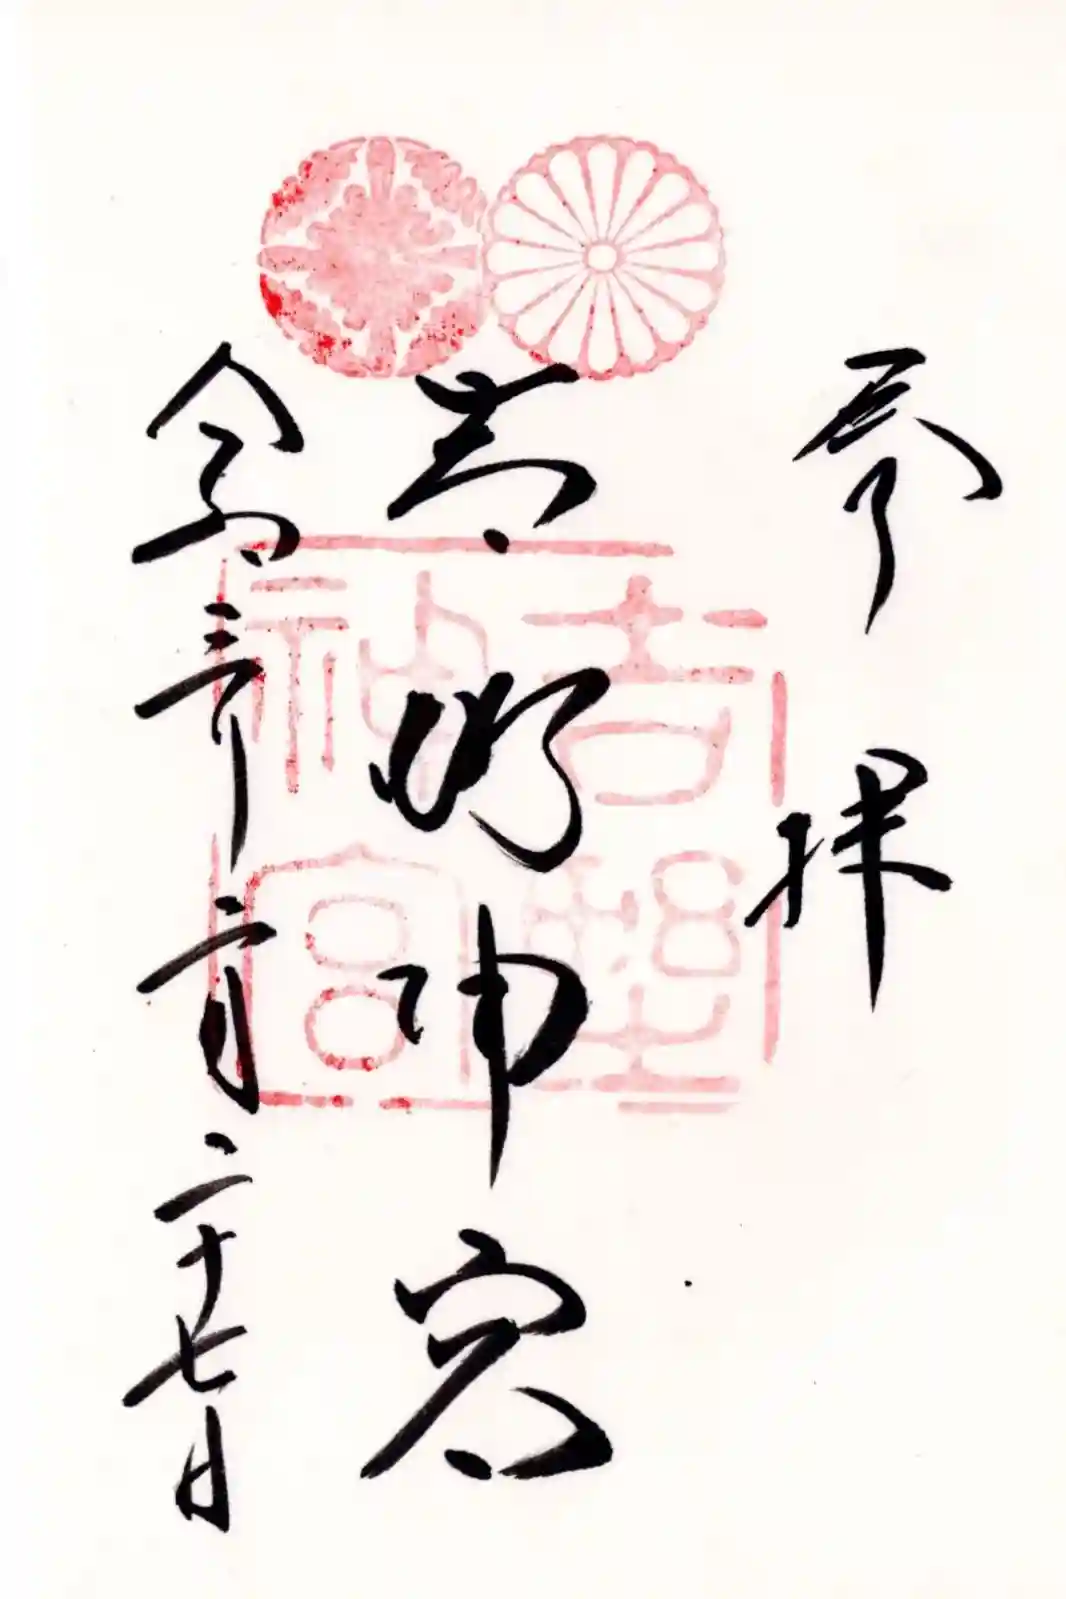 参拝
吉野神宮
令和三年二月二十七日
吉野
神宮